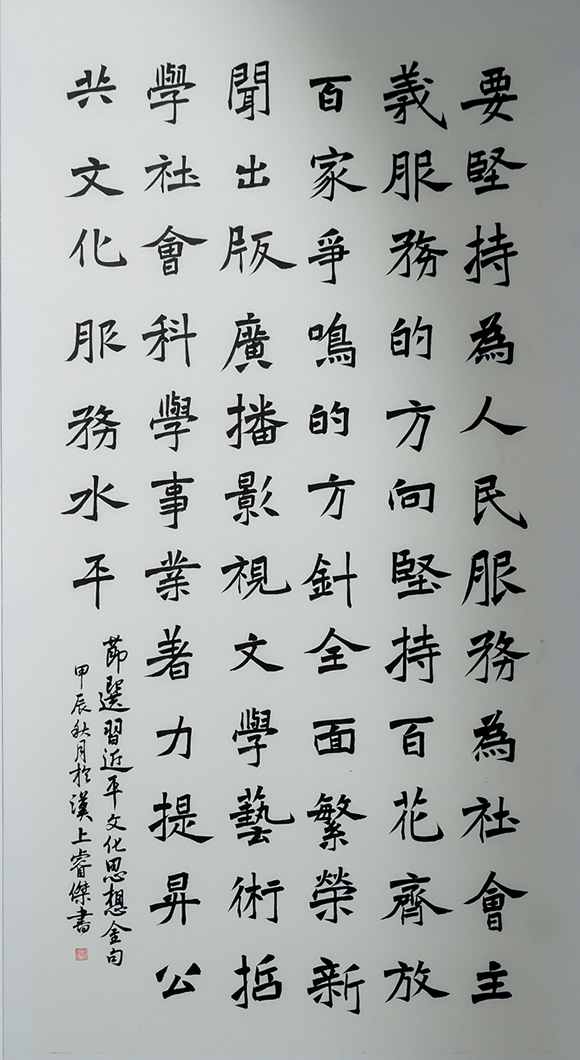 要堅持為人民服務為社會主
義服務的方向堅持百花齊放
百家爭鳴的方針全面繁榮新
聞出版廣播影視文學藝術哲
學社會科學事業着力提昇公
共文化服務水平
節選習近平文化思想金句
甲辰秋月於漢上睿傑書